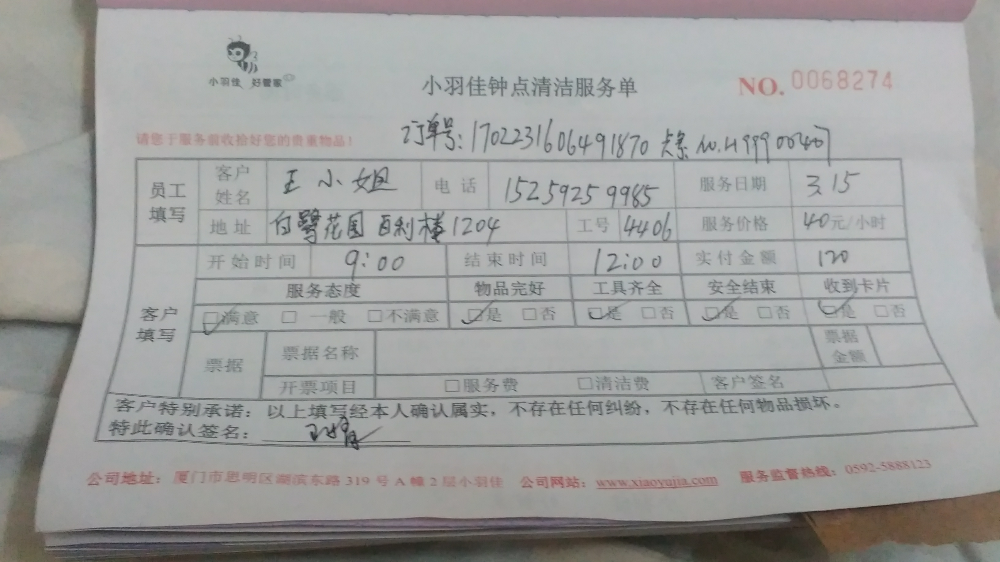 小羽佳 好管家
小羽佳钟点清洁服务单
NO. 0068274
请您于服务前收拾好您的贵重物品!
订单号:1702231606491870 NO.H99900407
员工填写 客户姓名 王小姐 电话 15259259985 服务日期 3.15
地址 白鹭花园百利楼1204 工号 4406 服务价格 40元/小时
客户填写 开始时间 9:00 结束时间 12:00 实付金额 120
服务态度 物品完好 工具齐全 安全结束 收到卡片
☑满意 □一般 □不满意 ☑是 □否 ☑是 □否 ☑是 □否 ☑是 □否
票据 票据名称 票据金额
开票项目 □服务费 □清洁费 客户签名
客户特别承诺:以上填写经本人确认属实,不存在任何纠纷,不存在任何物品损坏。
特此确认签名:
公司地址:厦门市思明区湖滨东路319号A幢2层小羽佳 公司网站:www.xiaoyujia.com 服务监督热线:0592-5888123